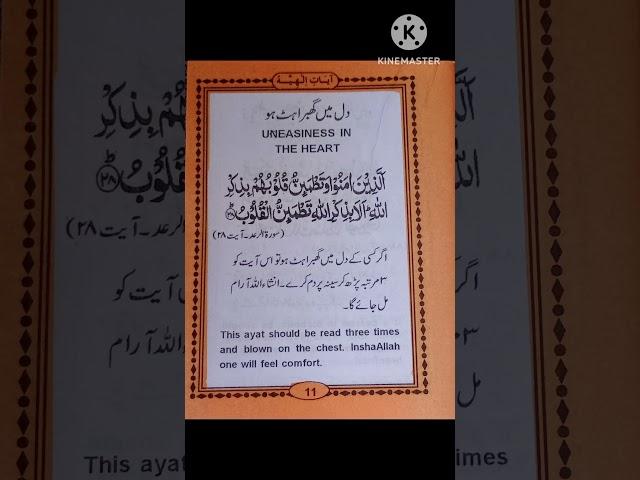 KINEMASTER
آیاتِ الٰہیّہ
دل میں گھبراہٹ ہو
UNEASINESS IN
THE HEART
اَلَّذِیْنَ اٰمَنُوْا وَتَطْمَىِٕنُّ قُلُوْبُهُمْ بِذِكْرِ
اللّٰهِؕ اَلَا بِذِكْرِ اللّٰهِ تَطْمَىِٕنُّ الْقُلُوْبُؕ ۲۸
(سورۃ الرعد۔آیت ۲۸)
اگر کسی کے دل میں گھبراہٹ ہو تو اس آیت کو
۳ مرتبہ پڑھ کر سینہ پر دم کرے۔ انشاء اللہ آرام
مل جائے گا۔
This ayat should be read three times
and blown on the chest. InshaAllah
one will feel comfort.
11